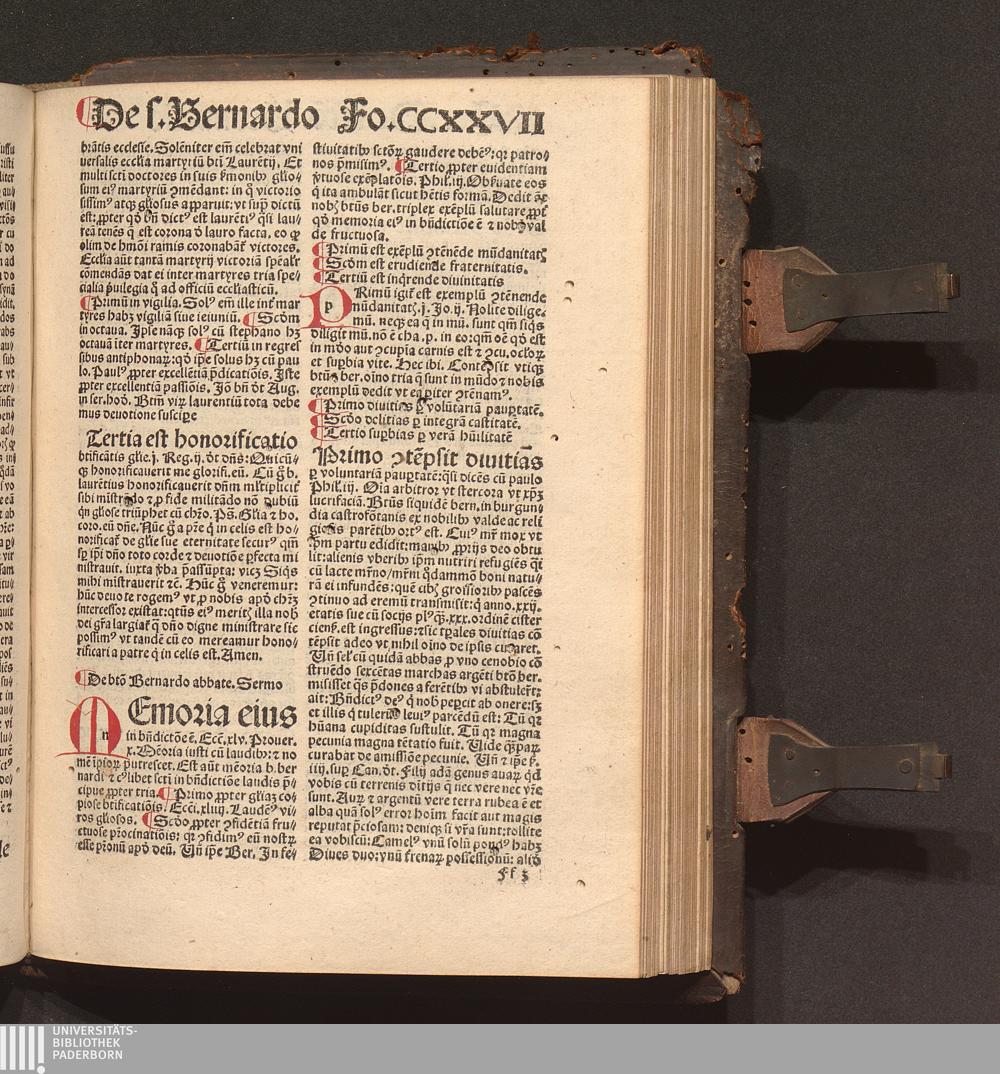 De s. Bernardo Fo.CCXXVII
brātis ecclesie. Solēniter em̄ celebrat vni
uersalis ecclia martyriū bt̄i Laurētij. Et
multi scti doctores in suis ẜmonibꝰ glio
sum eiꝰ martyriū ꝯmēdant: in q̄ victorio
sissimꝰ atqꝫ gl̓iosus apparuit: vt suꝑ dictū
est: ꝓpter qd̓ bn̄ dictꝰ est laurētiꝰ q̄si lau⸗
reā tenēs q̄ est corona d̓ lauro facta. eo ꝙ
olim de hmōi ramis coronabāt̄ victores.
Ecclia aūt tantā martyrij victoriā speal̓r
cōmendās dat ei inter martyres tria spe⸗
cialia p̄uilegia q̄ ad officiū ecclīasticū.
Primū in vigilia. Solꝰ em̄ ille int̄ mar
tyres habꝫ vigiliā siue ieiuniū. Scd̓m
in octaua. Ipse nāqꝫ solꝰ cū stephano hꝫ
octauā īter martyres. Tertiū in regres
sibus antiphonaꝝ: qd̓ ip̄e solus hꝫ cū pau
lo. Paulꝰ ꝓpter excellētiā p̄dicatiōis. Iste
ꝓpter excellentiā passiōis. Iō bn̄ d̓t Aug.
in ser. hoc̄. Btm̄ viꝝ laurentiū tota debe
mus deuotione suscipe
Tertia est honorificatio
btificātis glie. j. Reg. ij. d̓t dn̄s: Quicū⸗
qꝫ honorificauerit me glorifi. eū. Cū g̊ b.
laurētius honorificauerit dn̄m ml̓tiplicit̄
sibi mīstrādo ⁊ ꝓ fide militādo nō dubiū
qn̄ gliose triūphet cū chr̄o. Ps̄. Glīa ⁊ ho.
coro. eū dn̄e. Nūc g̊ a pr̄e q̄ in celis est ho⸗
norificat̄ de glīe sue eternitate securꝰ qm̄
sꝑ ip̄i dn̄o toto corde ⁊ deuotiōe ꝑfecta mi
nistrauit. iuxta v̓ba p̄assūpta: vicꝫ Siqs
mihi mīstrauerit ⁊c̄. Hūc g̊ veneremur:
hūc deuote rogemꝰ vt ꝓ nobis apd̓ chr̄ꝫ
intercessor existat: qtūs eiꝰ meritꝭ illa nob̄
dei gr̄a largiat̄ q̄ dn̄o digne ministrare sic
possimꝰ vt tandē cū eo mereamur hono⸗
rificari a patre q̄ in celis est. Amen.
De btō Bernardo abbate. Sermo
n EMORIA eius
in bn̄dictōe ē. Ecc̄. xlv. Prouer.
x. Mēoria iusti cū laudibꝰ: ⁊ no
mē īpioꝝ putrescet. Est aūt mēoria b. ber
nardi ⁊ cꝰlibet scti in bn̄dictiōe laudis p̄⸗
cipue ꝓpter tria. Primo ꝓpter gliaꝫ co⸗
piose btificatiōis. Ecc̄i. xliiij. Laudēꝰ vi⸗
ros gliosos. Scd̓o ꝓpter ꝯfidētiā fru⸗
ctuose pr̄ocinatiōis: qꝛ ꝯfidimꝰ eū nostꝝ
esse pr̄onū apd̓ deū. Vn̄ ip̄e Ber. In fe⸗
stiuitatibꝰ sctōꝝ gaudere debēꝰ: qꝛ patro⸗
nos p̄misimꝰ. Tertio ꝓpter euidentiam
v̓tuose exēplatōis. Phil̓. iij. Obẜuate eos
q̄ ita ambulāt sicut hētis formā. Dedit āt̄
nobꝭ btūs ber. triplex exēplū salutare ꝓpt̄
qd̓ memoria eiꝰ in bn̄dictiōe ē ⁊ nob̄ val
de fructuosa.
Primū est exēplū ꝯtēnēde mūdanitatꝭ
Scd̓m est erudiende fraternitatis.
Tertiū est inqrende diuinitatis
p Rimū igit̄ est exemplū ꝯtēnende
mūdanitatꝭ. j. Jo. ij. Nolite dilige.
mū. neqꝫ ea q̄ in mū. sunt qm̄ siqs
diligit mū. nō ē cha. p. in eo: qm̄ oē qd̓ est
in mōo aut ꝯcupīa carnis est ⁊ ꝯcu. ocl̓oꝝ
et suꝑbia vite. Hec ibi. Contēpsit vtiqꝫ
btūs ber. oīno tria q̄ sunt in mūdo ⁊ nobis
exemplū dedit vt ea pariter ꝯtēnamꝰ.
Primo diuitias ꝑ volūtariā pauꝑtatē.
Scd̓o delitias ꝑ integrā castitatē.
Tertio suꝑbias ꝑ verā hūilitatē
Primo ꝯtēpsit diuitias
ꝑ voluntariā pauꝑtatē: q̄si dicēs cū paulo
Phil̓. iij. Oīa arbitror vt stercora vt xp̄ꝫ
lucrifaciā. Btūs siquidē bern. in burgun⸗
dia castrofōtanis ex nobilibꝰ valde ac reli
giosis parētibꝰ ortꝰ est. Cuiꝰ mr̄ mox vt
ip̄m partu edidit: manibꝰ ꝓprijs deo obtu
lit: alienis vberibꝰ ip̄m nutriri refugiēs q̄i
cū lacte mr̄no/mr̄m q̄dammō boni natu⸗
rā ei infundēs: quē cibꝭ grossioribꝰ pascēs
ꝯtinuo ad eremū transmisit: q̄ anno. xxij.
etatis sue cū socijs plꝰqꝫ. xxx. ordinē cister
cienẜ. est ingressus: ⁊ sic tꝑales diuitias cō
tēpsit adeo vt nihil oīno de ipsis curaret.
Vn̄ sel̓ cū quidā abbas ꝓ vno cenobio cō
struēdo sexcētas marchas argēti btō ber.
misisset q̄s p̄dones aferētibꝰ vi abstulert̄:
ait: Bn̄dictꝰ deꝰ q̄ nob̄ peꝑcit ab onere: sꝫ
et illis q̄ tulerūt leuiꝰ parcēdū est: Tū qꝛ
hūana cupiditas sustulit. Tū qꝛ magna
pecunia magna tētatio fuit. Vide q̄ꝫpaꝝ
curabat de amissiōe pecunie. Vn̄ ⁊ ip̄e ẜ.
iiij. suꝑ Can. d̓t. Filij adā genus auaꝝ qd̓
vobis cū terrenis ditijs q̄ nec vere nec vr̄e
sunt. Auꝝ ⁊ argentū vere terra rubea ē et
alba quā solꝰ error hoīm facit aut magis
reputat p̄ciosam: deniqꝫ si vr̄a sunt: tollite
ea vobiscū: Camelꝰ vnū solū pondꝰ habꝫ
Diues duo: vnū t̄renaꝝ possessionū: aliō
Ff 3
UNIVERSITÄTS-
BIBLIOTHEK
PADERBORN